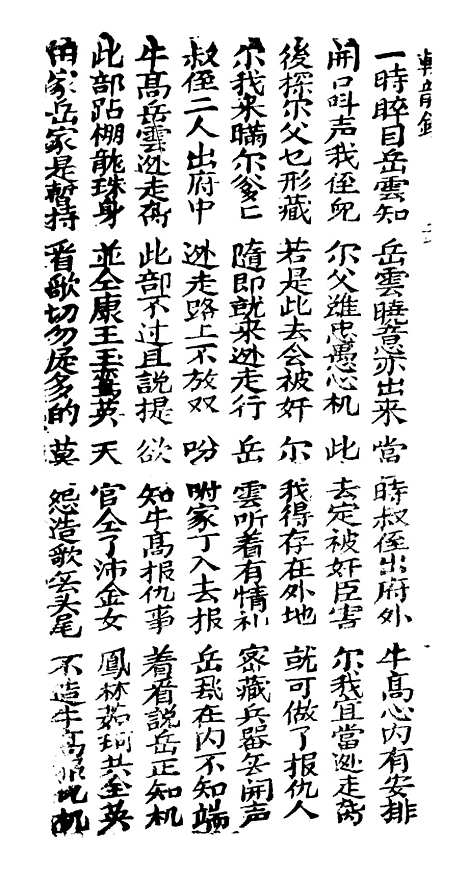 一時睟目岳雲知 岳雲曉意亦出來 當時叔侄出府外 牛高心內有安排
開口呌声我侄兒 尔父進忠愚心机 此去定被奸臣害 尔我宜當迯走离
後探尔父乜形藏 若是此去会被奸 尔我得存在外地 就可做了报仇人
尔我来瞞尔爹亡 隨即就来迯走行 岳雲听着有情礼 密藏兵器无開声
叔侄二人出府中 迯走路上不放双 吩咐家丁入去报 岳飛在內不知端
牛高岳雲迯走离 此部不过且説提 欲知牛高报仇事 着看説岳正知机
此部跕棚龍珠身 並仝康王王鸞英 天官仝了沛金女 鳳林茹珂共仝英
家岳家是暫持 看歌切勿多的 莫怨造歌无头尾 不造牛高报仇机